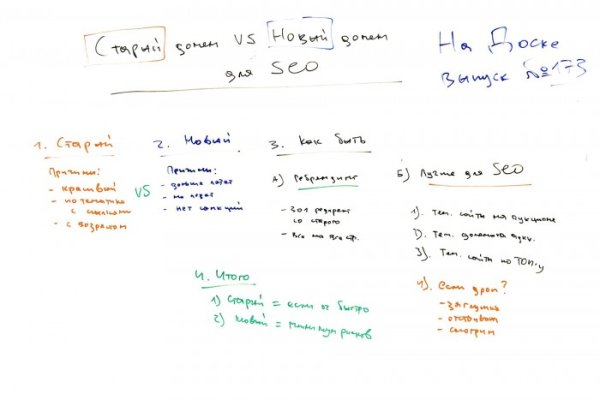 Старый домен VS Новый домен
для SEO
На Доске
выпуск №173
1. Старый
Причины:
- красивый
- по тематике
с ссылками
- с возрастом
VS
2. Новый
Причины:
- дольше
- нет санкций
3. Как быть
А) Ребрендинг
- 301 редирект
со старого
- Все на Все стр.
Б) Лучше для SEO
1). Тем. сайты на аукционе
2). Тем. домены аукц.
3). Тем. сайты по ТОП-у
4). Если дроп?
- заглушка
- отстаивать
- смотрим
4. Итого
1) Старый = если ок быстро
2) Новый = минимум рисков